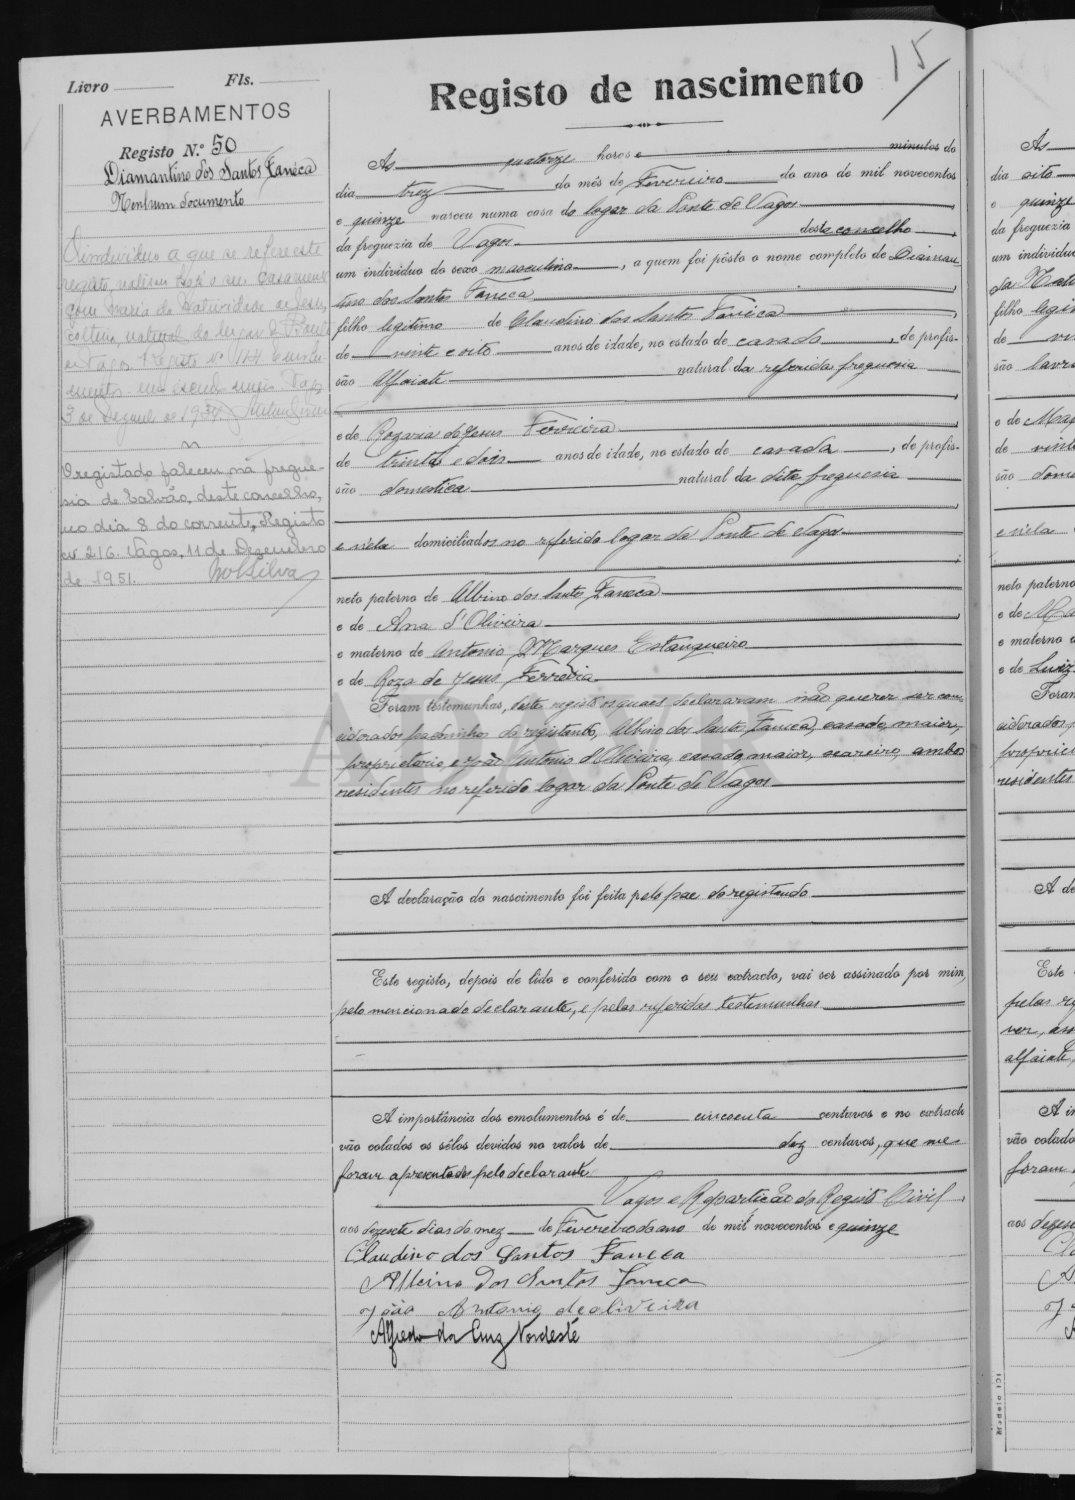 Livro Fls.
AVERBAMENTOS
Registo N.º 50
Diamantino dos Santos Faneca
Nenhum documento
O individuo a que se refere este
registo, realisou hoje o seu casamento
com Maria da Natividade de Jesus,
solteira, natural do lugar de
Vagos. Registo nº 144
3 de de 1934.
O registado faleceu na fregue-
sia de Calvão, deste concelho,
no dia 8 do corrente, Registo
nº 216. Vagos, 11 de Dezembro
de 1951. Silva
15
Registo de nascimento
As quatorze horas e minutos do
dia trez do mês de Fevereiro do ano de mil novecentos
e quinze nasceu numa casa do logar da Ponte de Vagos
da freguezia de Vagos deste concelho
um individuo do sexo masculino, a quem foi pôsto o nome completo de Diaman-
tino dos Santos Faneca
filho legitimo de Claudino dos Santos Faneca
de vinte e oito anos de idade, no estado de casado, de profis-
são Alfaiate natural da referida freguesia
e de Rozaria de Jesus Ferreira
de trinta e dois anos de idade, no estado de casada, de profis-
são domestica natural da dita freguesia
e nela domiciliados no referido logar da Ponte de Vagos
neto paterno de Albino dos Santos Faneca
e de Ana d'Oliveira
e materno de Antonio Marques Estanqueiro
e de Roza de Jesus Ferreira
Foram testemunhas, deste registo os quaes declararam não querer ser con-
siderados padrinhos do registando, Albino dos Santos Faneca, casado, maior,
proprietario, e João Antonio d'Oliveira, casado, maior, seareiro, ambos
residentes no referido logar da Ponte de Vagos
A declaração do nascimento foi feita pelo pae do registando
Este registo, depois de lido e conferido com o seu extracto, vai ser assinado por mim,
pelo mencionado declarante, e pelas referidas testemunhas
A importância dos emolumentos é de cincoenta centavos e no extracto
vão colados os sêlos devidos no valor de dez centavos, que me
foram apresentados pelo declarante
Vagos e Repartição do Registo Civil
aos dezesete dias do mez de Fevereiro do ano de mil novecentos e quinze
Claudino dos Santos Faneca
Albino dos Santos Faneca
João Antonio de oliveira
Alfredo da Cruz Nordeste
As
dia oito
e quinze
da freguezia
um individuo
filho
de
são
e de
de
são
e nela
neto paterno
e de
e materno
e de Luiz
Foram
residentes
A
Este
alfaiate,
A
vão colado
foram
aos
Modelo 101